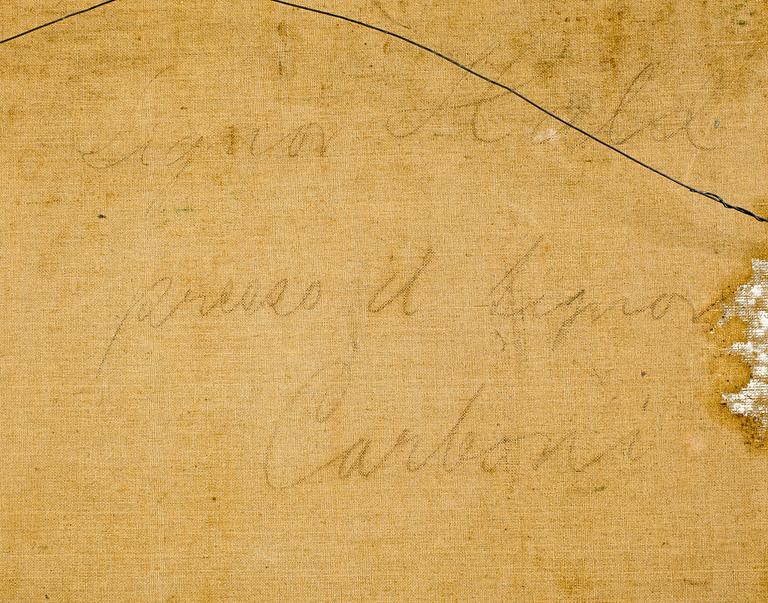 Signor
presso il Signor
Carboni